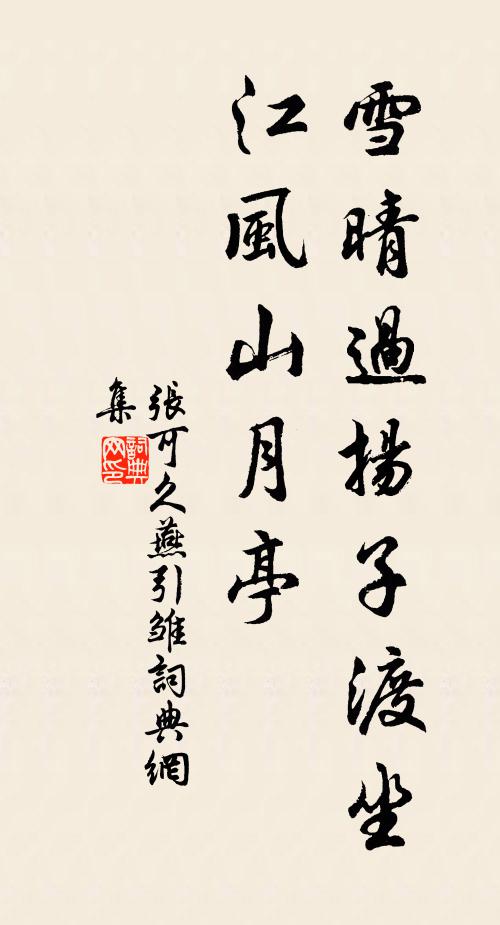 雪晴過揚子渡坐
江風山月亭
張可久燕引雛詞典網
集
詞典網印